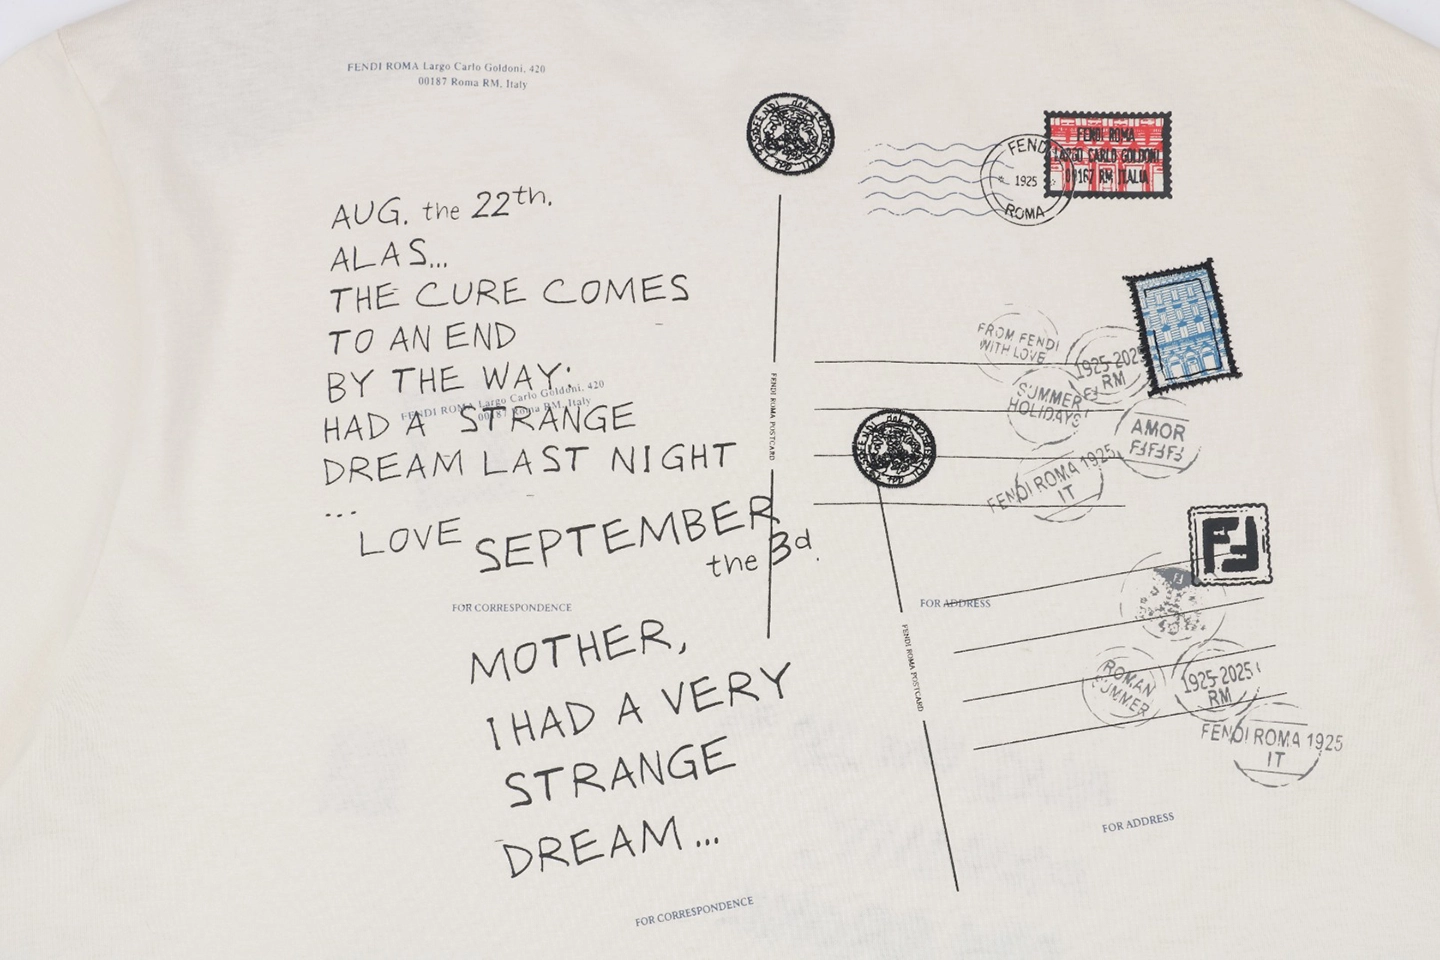 FENDI ROMA Largo Carlo Goldoni, 420
00187 Roma RM, Italy
AUG. the 22th.
ALAS...
THE CURE COMES
TO AN END
BY THE WAY:
FENDI ROMA Largo Carlo Goldoni, 420
00187 Roma RM, Italy
HAD A STRANGE
DREAM LAST NIGHT
...
LOVE
SEPTEMBER
the 3d.
FOR CORRESPONDENCE
MOTHER,
I HAD A VERY
STRANGE
DREAM...
FOR CORRESPONDENCE
FENDI ROMA POSTCARD
FENDI
1925
ROMA
FENDI ROMA
LARGO CARLO GOLDONI
RM ITALIA
FROM FENDI
WITH LOVE
1925-2025
RM
SUMMER
HOLIDAYS
AMOR
FENDI ROMA 1925
IT
FOR ADDRESS
FENDI ROMA POSTCARD
ROMAN
SUMMER
1925-2025
RM
FENDI ROMA 1925
IT
FOR ADDRESS